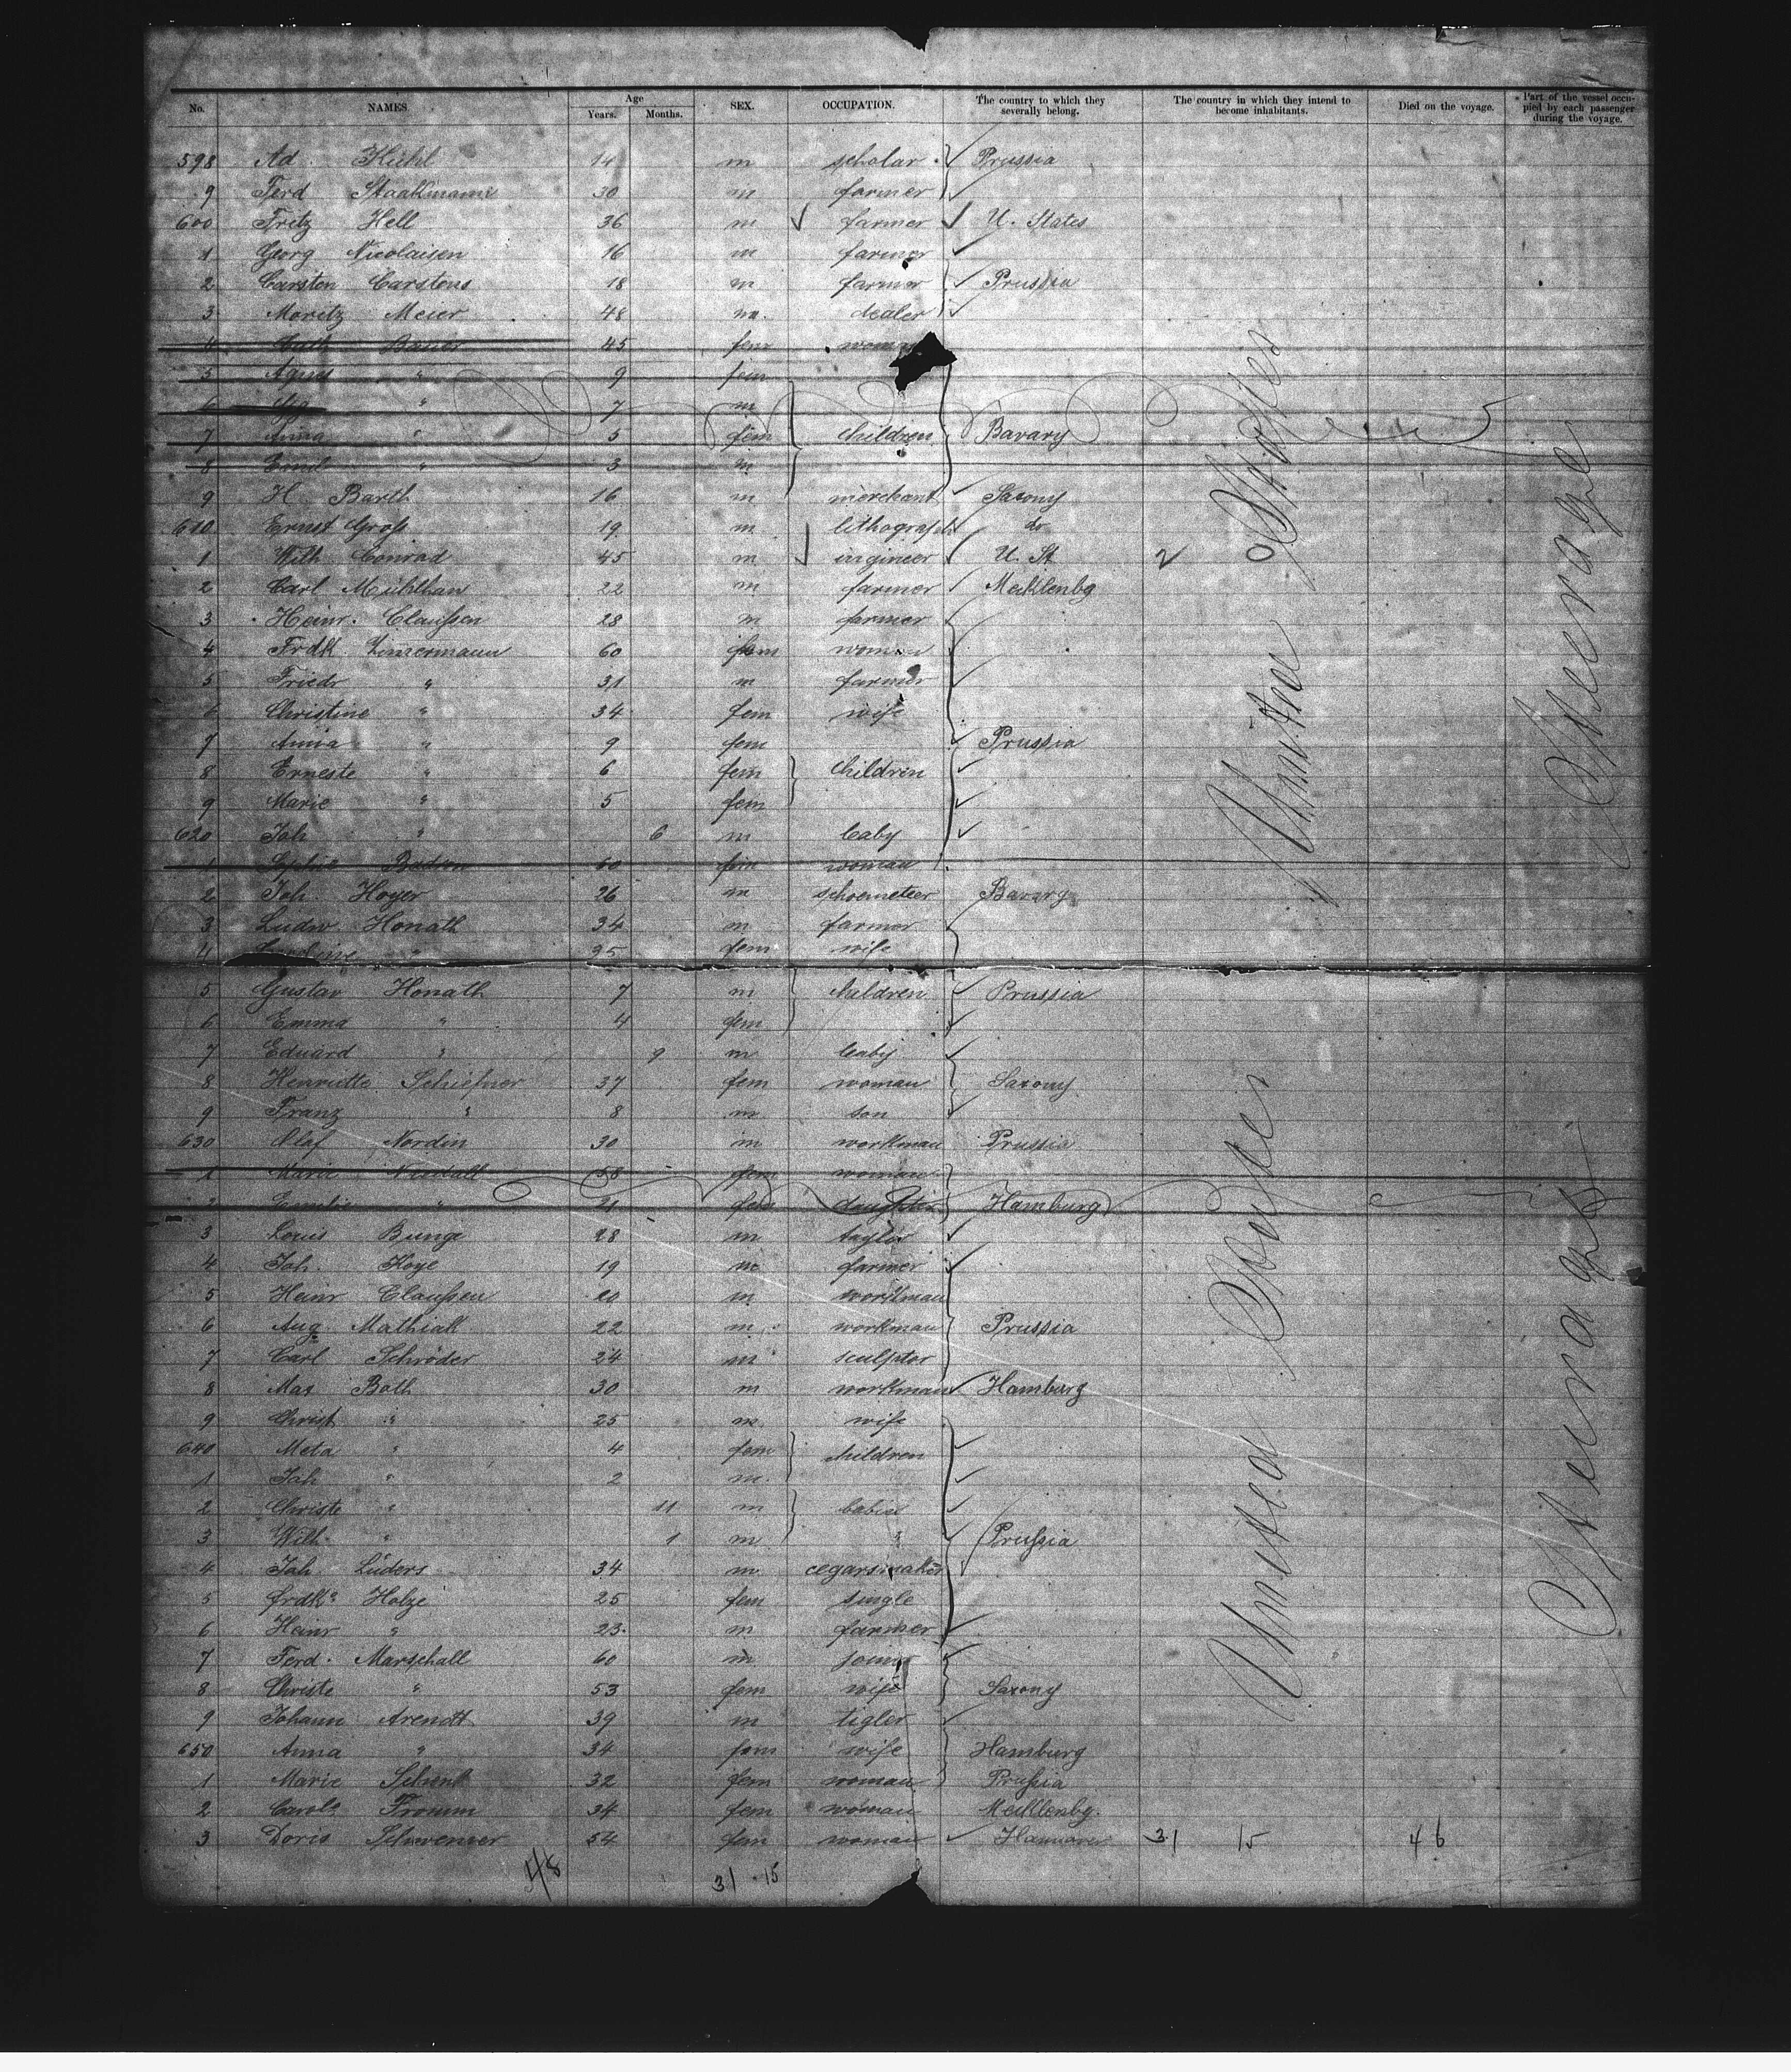 No. NAMES. Age Years. Months. SEX. OCCUPATION. The country to which they severally belong. The country in which they intend to become inhabitants. Died on the voyage. Part of the vessel occupied by each passenger during the voyage.
598 Ad. Kiehl 14 m scholar Prussia
9 Ferd Staakmann 30 m farmer
600 Fritz Hell 36 m farmer U. States
1 Georg Nicolaisen 16 m farmer
2 Carsten Carstens 18 m farmer Prussia
3 Moritz Meier 48 m. dealer
4 Bauer 45 fem woman
5 Agnes " 9 fem
6 " 7 m
7 Anna " 5 fem children Bavary
8 Emil " 3 m
9 H. Barth 16 m merchant Saxony
610 Ernst Groß 19 m lithograph do
1 Wilh Conrad 45 m ingineer U. St 2
2 Carl Mühlhan 22 m farmer Mecklenbg
3 Heinr. Claußen 28 m farmer
4 Frdk Zimermann 60 fem woman
5 Friedr " 31 m farmer
6 Christine " 34 fem wife
7 Anna " 9 fem Prussia
8 Erneste " 6 fem children
9 Marie " 5 fem
620 Joh " 6 m baby
1 Sophie 60 fem woman
2 Joh. Hoyer 26 m Bavary
3 Ludw Honath 34 m farmer
4 " 35 fem wife
5 Gustav Honath 7 m children Prussia
6 Emma " 4 fem
7 Eduard " 9 m baby
8 Henriette Schiefner 37 fem woman Saxony
9 Franz " 8 m son
630 Olaf Nordin 30 m workman Prussia
1 Marie 58 fem woman
2 Emilie " 21 fem daughter Hamburg
3 Louis Bunge 28 m taylor
4 Joh. Hoye 19 m farmer
5 Heinr Claußen 20 m workman
6 Aug. Mathiall 22 m workman Prussia
7 Carl Schröder 24 m sculptor
8 Max Bath 30 m workman Hamburg
9 Christ " 25 m wife
640 Meta " 4 fem children
1 Joh " 2 m.
2 Christe " 11 m babies
3 Wilh. " 1 m " Prußia
4 Joh Lüders 34 m cegarsmaker
5 Frdke Holze 25 fem single
6 Heinr " 23. m farmer
7 Ferd. Marschall 60 m
8 Christe " 53 fem wife Saxony
9 Johann Arendt 39 m tigler
650 Anna " 34 fem wife Hamburg
1 Marie Schenk 32 fem woman Prußia
2 Carole Fromm 34 fem woman Mecklenbg.
3 Doris Schwenver 54 fem woman Hannover 31 15 46
48 31 15
United States
Steerage
United States
Steerage